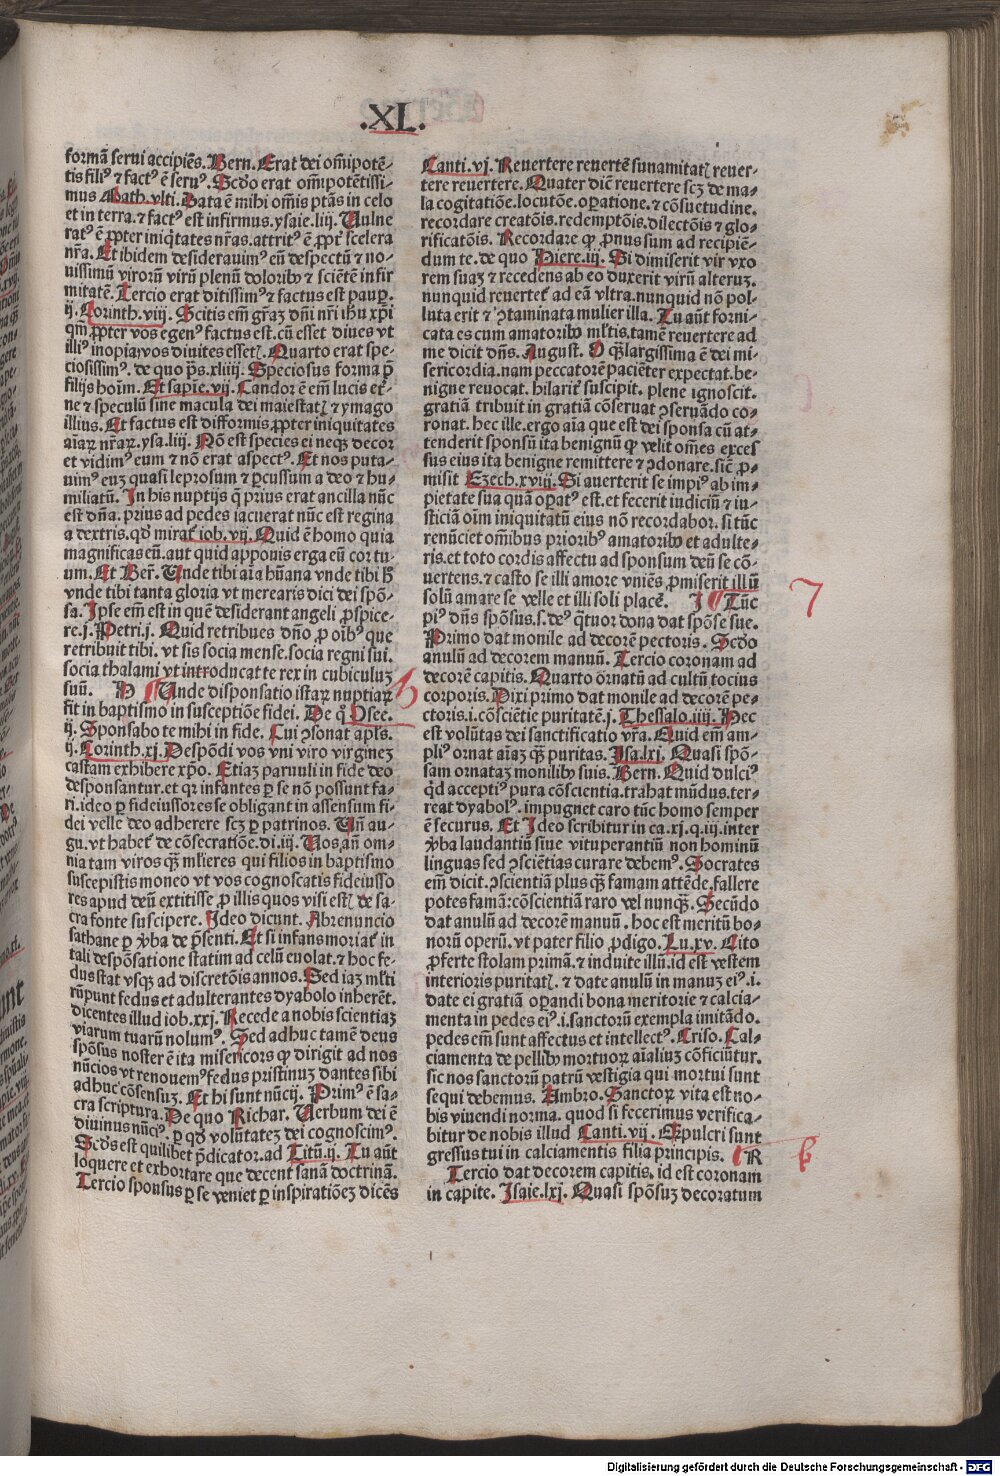 .XL.
formã serui accipiẽs. Bern. Erat dei om̃ipotẽ-
tis filiꝰ ⁊ factꝰ ẽ seruꝰ. Scd̃o erat om̃ipotẽtissi-
mus Math. vlti. Data ẽ mihi om̃is ptãs in celo
et in terra. ⁊ factꝰ est infirmus. ysaie. liij. Uulne
ratꝰ ẽ ꝓpter iniq̃tates nr̃as. attritꝰ ẽ ꝓpt̃ scelera
nr̃a. Et ibidem desiderauimꝰ eũ despectũ ⁊ no-
uissimũ virorũ virũ plenũ dolorib⁊ ⁊ sciẽtẽ infir
mitatẽ. Tercio erat ditissimꝰ ⁊ factus est paup̲.
ij. Corinth. viij. Scitis em̃ gr̃az dñi nr̃i ihũ xp̃i
qm̃ ꝓpter vos egenꝰ factus est. cũ esset diues vt
illiꝰ inopia vos diuites essetꝭ. Quarto erat spe-
ciosissimꝰ. de quo p̃s. xliiij. Speciosus forma p̃
filijs hoim̃. Et sapie. vij. Candor ẽ em̃ lucis et̃-
ne ⁊ speculũ sine macula dei maiestatꝭ ⁊ ymago
illius. Et factus est difformis ꝓpter iniquitates
aĩaꝝ nr̃aꝝ. ysa. liij. Nõ est species ei neqꝫ decor
et vidimꝰ eum ⁊ nõ erat aspectꝰ. Et nos puta-
uimꝰ euz quasi leprosum ⁊ ꝑcussum a deo ⁊ hu-
miliatũ. In his nuptijs q̃ prius erat ancilla nũc
est dña. prius ad pedes iacuerat nũc est regina
a dextris. qd̃ mirat᷑ iob. vij. Quid ẽ homo quia
magnificas eũ. aut quid apponis erga eũ cor tu-
um. Et Ber̃. Unde tibi aĩa hũana vnde tibi h̃
vnde tibi tanta gloria vt merearis dici dei spõ-
sa. Ipse em̃ est in quẽ desiderant angeli ꝓspice-
re. j. Petri. j. Quid retribues dño ꝓ oĩbꝰ que
retribuit tibi. vt sis socia mense. socia regni sui.
socia thalami vt introducat te rex in cubiculuz
suũ. P ¶ Unde disponsatio istaꝝ nuptiaꝝ
fit in baptismo in susceptiõe fidei. De q̊ Osee.
ij. Sponsabo te mihi in fide. Cui ꝯsonat apl̃s.
ij. Corinth. xj. Despõdi vos vni viro virginez
castam exhibere xp̃o. Etiaz paruuli in fide deo
desponsantur. et qꝛ infantes ꝑ se nõ possunt fa-
ri. ideo ꝑ fideiussores se obligant in assensum fi-
dei velle deo adherere scz ꝑ patrinos. Uñ au-
gu. vt habet᷑ de cõsecratiõe. di. iij. Uos añ om-
nia tam viros qꝫ mlieres qui filios in baptismo
suscepistis moneo vt vos cognoscatis fideiusso
res apud deũ extitisse ꝓ illis quos visi estꝭ de sa-
cra fonte suscipere. Ideo dicunt. Abrenuncio
sathane ꝑ v̾ba de p̃senti. Et si infans moriat᷑ in
tali despõsatione statim ad celũ euolat. ⁊ hoc fe-
dus stat vsqꝫ ad discretõis annos. Sed iaz ml̃ti
rũpunt fedus et adulterantes dyabolo inherẽt.
dicentes illud iob. xxj. Recede a nobis scientiaz
viarum tuarũ nolumꝰ. Sed adhuc tamẽ deus
spõsus noster ẽ ita misericors ꝙ dirigit ad nos
nũcios vt renouemꝰ fedus pristinuz dantes sibi
adhuc cõsensuz. Et hi sunt nũcij. Primꝰ ẽ sa-
cra scriptura. De quo Richar. Uerbum dei ẽ
diuinus nũciꝰ. ꝑ qd̃ volũtatez dei cognoscimꝰ.
Scd̃s est quilibet p̃dicator. ad Titũ. ij. Tu aũt
loquere et exhortare que decent sanã doctrinã.
Tercio sponsus ꝑ se veniet ꝑ inspiratiõez dicẽs
Canti. vj. Reuertere reuertẽ sunamitatꝭ reuer-
tere reuertere. Quater diẽ reuertere scz de ma-
la cogitatiõe. locutõe. oꝑatione. ⁊ cõsuetudine.
recordare creatõis. redemptõis. dilectõis ⁊ glo-
rificatõis. Recordare ꝙ pnus sum ad recipiẽ-
dum te. de quo Hiere. iij. Si dimiserit vir vxo
rem suaz ⁊ recedens ab eo duxerit virũ alteruz.
nunquid reuertet᷑ ad eã vltra. nunquid nõ pol-
luta erit ⁊ ꝯtaminata mulier illa. Tu aũt forni-
cata es cum amatorib⁊ ml̃tis. tamẽ reuertere ad
me dicit dñs. August. O q̃ largissima ẽ dei mi-
sericordia. nam peccatorẽ paciẽter expectat. be-
nigne reuocat. hilarit᷑ suscipit. plene ignoscit.
gratiã tribuit in gratiã cõseruat ꝯseruãdo co-
ronat. hec ille. ergo aĩa que est dei sponsa cũ at-
tenderit sponsũ ita benignũ ꝙ velit om̃es exces
sus eius ita benigne remittere ⁊ ꝯdonare. sic̃ ꝓ-
misit Ezech. xviij. Si auerterit se impiꝰ ab im-
pietate sua quã oꝑatꝰ est. et fecerit iudiciũ ⁊ iu-
sticiã oĩm iniquitatũ eius nõ recordabor. si tũc
renũciet om̃ibus priorib⁊ amatorib⁊ et adulte-
ris. et toto cordis affectu ad sponsum deũ se cõ-
uertens. ⁊ casto se illi amore vniẽs ꝓmiserit illũ
solũ amare se velle et illi soli placẽ. I ¶ Tũc
piꝰ dñs spõsus. s. deꝰ q̃tuor dona dat spõse sue.
Primo dat monile ad decorẽ pectoris. Scd̃o
anulũ ad decorem manuũ. Tercio coronam ad
decorẽ capitis. Quarto ornatũ ad cultũ tocius
corporis. Dixi primo dat monile ad decorẽ pe-
ctoris. i. cõsciẽtie puritatẽ. j. Thessalo. iiij. Hec
est volũtas dei sanctificatio vr̃a. Quid em̃ am-
pliꝰ ornat aĩaz q̃ puritas. Isa. lxj. Quasi spõ-
sam ornataz monilib⁊ suis. Bern. Quid dulciꝰ
qd̃ acceptiꝰ pura cõscientia. trahat mũdus. ter-
reat dyabolꝰ. impugnet caro tũc homo semper
ẽ securus. Et Ideo scribitur in ca. xj. q. iij. inter
v̾ba laudantiũ siue vituperantiũ non hominũ
linguas sed ꝯsciẽtias curare debemꝰ. Socrates
em̃ dicit. ꝯscientiã plus qꝫ famam attẽde. fallere
potes famã: cõscientiã raro vel nunqꝫ. Secũdo
dat anulũ ad decorẽ manuũ. hoc est meritũ bo-
norũ operũ. vt pater filio ꝓdigo. Lu. xv. Cito
ꝓferte stolam primã. ⁊ induite illũ. id est vestem
interioris puritatꝭ. ⁊ date anulũ in manuz eiꝰ. i.
date ei gratiã oꝑandi bona meritorie ⁊ calcia-
menta in pedes eiꝰ. i. sanctorũ exempla imitãdo.
pedes em̃ sunt affectus et intellectꝰ. Criso. Cal-
ciamenta de pellib⁊ mortuoꝝ aĩaliuz cõficiũtur.
sic nos sanctorũ patrũ vestigia qui mortui sunt
sequi debemus. Ambro. Sanctoꝝ vita est no-
bis viuendi norma. quod si fecerimus verifica-
bitur de nobis illud Canti. vij. Q̃ pulcri sunt
gressus tui in calciamentis filia principis. ¶ R
Tercio dat decorem capitis. id est coronam
in capite. Isaie. lxj. Quasi spõsuz decoratum
7
b
Digitalisierung gefördert durch die Deutsche Forschungsgemeinschaft - DFG